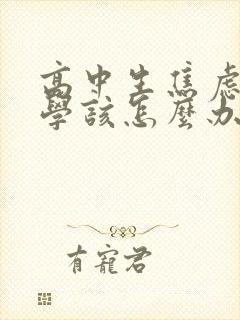 高中生焦慮
學該怎麼办
有寵君